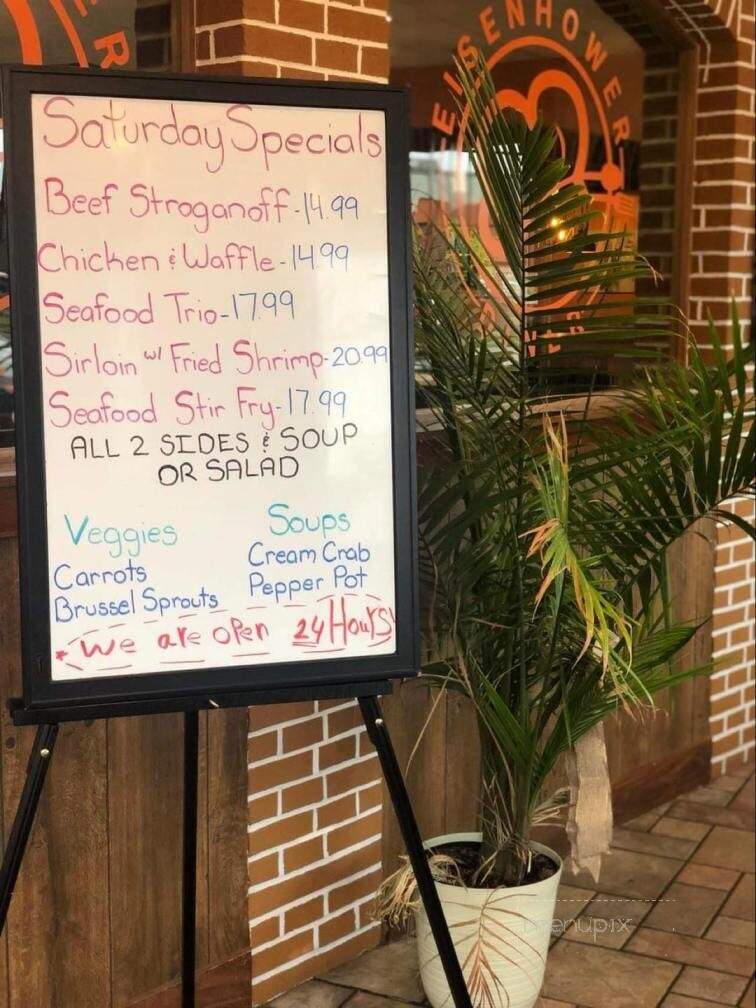 Saturday Specials
Beef Stroganoff - 14.99
Chicken & Waffle - 14.99
Seafood Trio - 17.99
Sirloin w/ Fried Shrimp - 20.99
Seafood Stir Fry - 17.99
ALL 2 SIDES & SOUP
OR SALAD
Veggies
Carrots
Brussel Sprouts
Soups
Cream Crab
Pepper Pot
* We are open 24 Hours
EISENHOWER
menupix